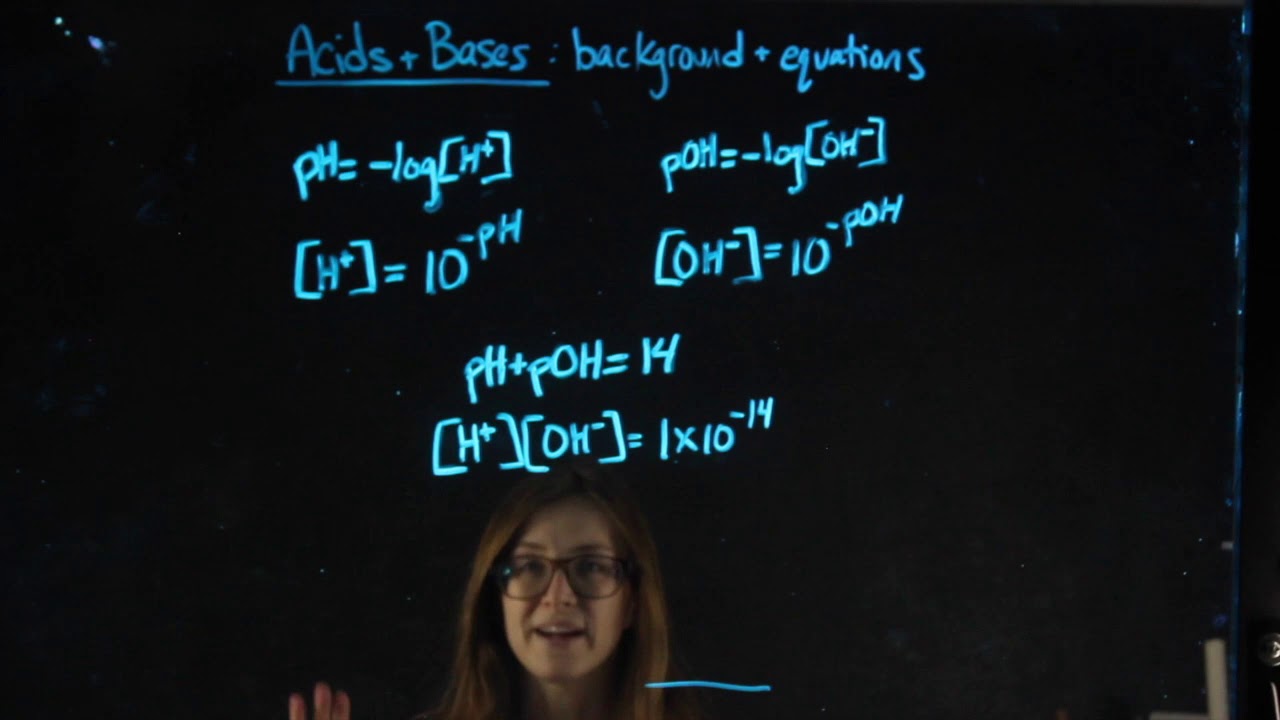 Acids + Bases : background + equations
pH = -log[H⁺]
pOH = -log[OH⁻]
[H⁺] = 10^-pH
[OH⁻] = 10^-pOH
pH + pOH = 14
[H⁺][OH⁻] = 1 x 10^-14